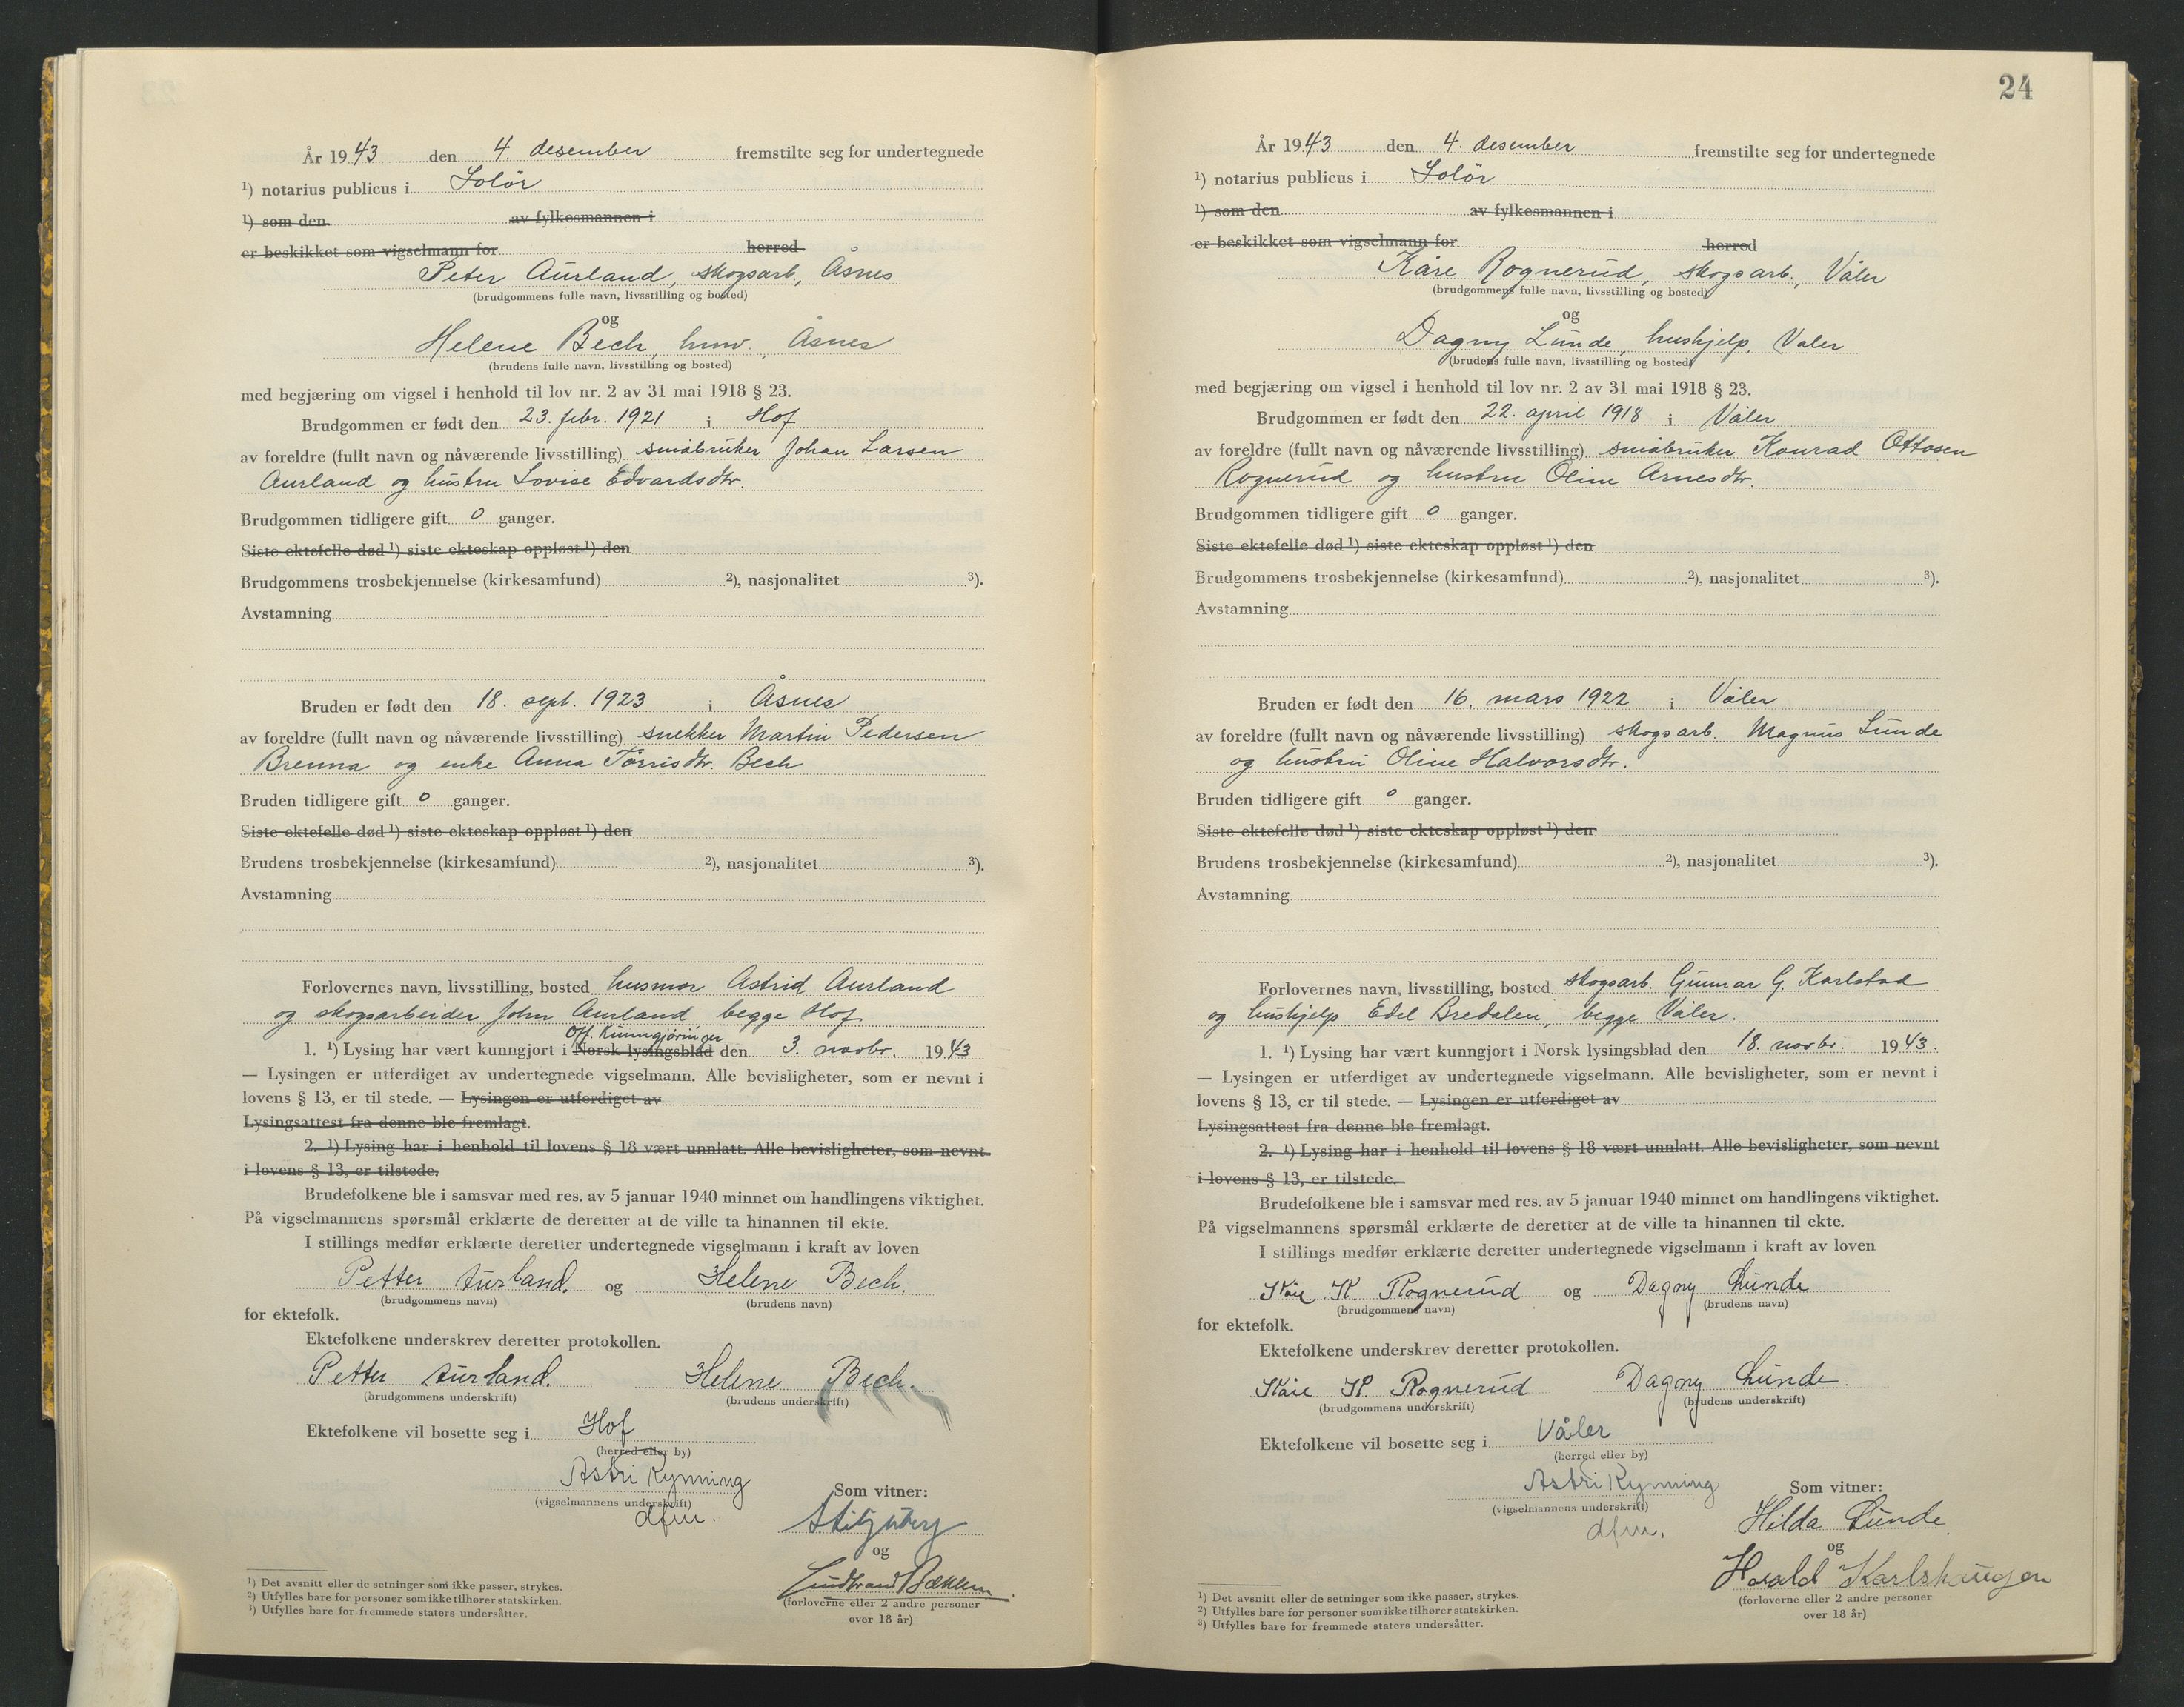 År 1943 den 4. desember fremstilte seg for undertegnede
¹) notarius publicus i Solör
¹) som den av fylkesmannen i
er beskikket som vigselmann for herred
Peter Aurland, skogsarb, Åsnes
(brudgommens fulle navn, livsstilling og bosted)
og
Helene Bech, husv., Åsnes
(brudens fulle navn, livsstilling og bosted)
med begjæring om vigsel i henhold til lov nr. 2 av 31 mai 1918 § 23.
Brudgommen er født den 23. febr. 1921 i Hof
av foreldre (fullt navn og nåværende livsstilling) småbruker Johan Larsen
Aurland og hustru Lovise Edvardsdtr.
Brudgommen tidligere gift 0 ganger.
Siste ektefelle død ¹) siste ekteskap oppløst ¹) den
Brudgommens trosbekjennelse (kirkesamfund) ²), nasjonalitet ³).
Avstamning
Bruden er født den 18. sept. 1923 i Åsnes
av foreldre (fullt navn og nåværende livsstilling) snekker Martin Pedersen
Brenna og enke Anna Törrisdtr. Bech
Bruden tidligere gift 0 ganger.
Siste ektefelle død ¹) siste ekteskap oppløst ¹) den
Brudens trosbekjennelse (kirkesamfund) ²), nasjonalitet ³).
Avstamning
Forlovernes navn, livsstilling, bosted husmor Astrid Aurland
og skogsarbeider John Aurland begge Hof
Off. Kunngjøringer
1. ¹) Lysing har vært kunngjort i Norsk lysingsblad den 3. novbr. 1943
— Lysingen er utferdiget av undertegnede vigselmann. Alle bevisligheter, som er nevnt i
lovens § 13, er til stede. — Lysingen er utferdiget av
Lysingsattest fra denne ble fremlagt.
2. ¹) Lysing har i henhold til lovens § 18 vært unnlatt. Alle bevisligheter, som nevnt
i lovens § 13, er tilstede.
Brudefolkene ble i samsvar med res. av 5 januar 1940 minnet om handlingens viktighet.
På vigselmannens spørsmål erklærte de deretter at de ville ta hinannen til ekte.
I stillings medfør erklærte deretter undertegnede vigselmann i kraft av loven
Petter Aurland. og Helene Bech.
(brudgommens navn) (brudens navn)
for ektefolk.
Ektefolkene underskrev deretter protokollen.
Petter Aurland. Helene Bech.
(brudgommens underskrift) (brudens underskrift)
Ektefolkene vil bosette seg i Hof
(herred eller by)
Astri Rynning
(vigselmannens underskrift)
dfm.
Som vitner:
og
(forloverne eller 2 andre personer
over 18 år)
¹) Det avsnitt eller de setninger som ikke passer, strykes.
²) Utfylles bare for personer som ikke tilhører statskirken.
³) Utfylles bare for fremmede staters undersåtter.
24
År 1943 den 4. desember fremstilte seg for undertegnede
¹) notarius publicus i Solör
¹) som den av fylkesmannen i
er beskikket som vigselmann for herred
Kåre Rognerud, skogsarb., Våler
(brudgommens fulle navn, livsstilling og bosted)
og
Dagny Lunde, hushjelp, Våler
(brudens fulle navn, livsstilling og bosted)
med begjæring om vigsel i henhold til lov nr. 2 av 31 mai 1918 § 23.
Brudgommen er født den 22. april 1918 i Våler
av foreldre (fullt navn og nåværende livsstilling) småbruker Konrad Ottosen
Rognerud og hustru Oline Arnesdtr.
Brudgommen tidligere gift 0 ganger.
Siste ektefelle død ¹) siste ekteskap oppløst ¹) den
Brudgommens trosbekjennelse (kirkesamfund) ²), nasjonalitet ³).
Avstamning
Bruden er født den 16. mars 1922 i Våler
av foreldre (fullt navn og nåværende livsstilling) skogsarb. Magnus Lunde
og hustru Oline Halvorsdtr.
Bruden tidligere gift 0 ganger.
Siste ektefelle død ¹) siste ekteskap oppløst ¹) den
Brudens trosbekjennelse (kirkesamfund) ²), nasjonalitet ³).
Avstamning
Forlovernes navn, livsstilling, bosted skogsarb. Gunnar G. Karlstad
og hushjelp Edel Bredalen, begge Våler.
1. ¹) Lysing har vært kunngjort i Norsk lysingsblad den 18. novbr. 1943.
— Lysingen er utferdiget av undertegnede vigselmann. Alle bevisligheter, som er nevnt i
lovens § 13, er til stede. — Lysingen er utferdiget av
Lysingsattest fra denne ble fremlagt.
2. ¹) Lysing har i henhold til lovens § 18 vært unnlatt. Alle bevisligheter, som nevnt
i lovens § 13, er tilstede.
Brudefolkene ble i samsvar med res. av 5 januar 1940 minnet om handlingens viktighet.
På vigselmannens spørsmål erklærte de deretter at de ville ta hinannen til ekte.
I stillings medfør erklærte deretter undertegnede vigselmann i kraft av loven
Kåre K. Rognerud og Dagny Lunde
(brudgommens navn) (brudens navn)
for ektefolk.
Ektefolkene underskrev deretter protokollen.
Kåre K. Rognerud Dagny Lunde.
(brudgommens underskrift) (brudens underskrift)
Ektefolkene vil bosette seg i Våler
(herred eller by)
Astri Rynning
(vigselmannens underskrift)
dfm.
Som vitner:
Hilda Lunde
og
Harald Karlshaugen
(forloverne eller 2 andre personer
over 18 år)
¹) Det avsnitt eller de setninger som ikke passer, strykes.
²) Utfylles bare for personer som ikke tilhører statskirken.
³) Utfylles bare for fremmede staters undersåtter.